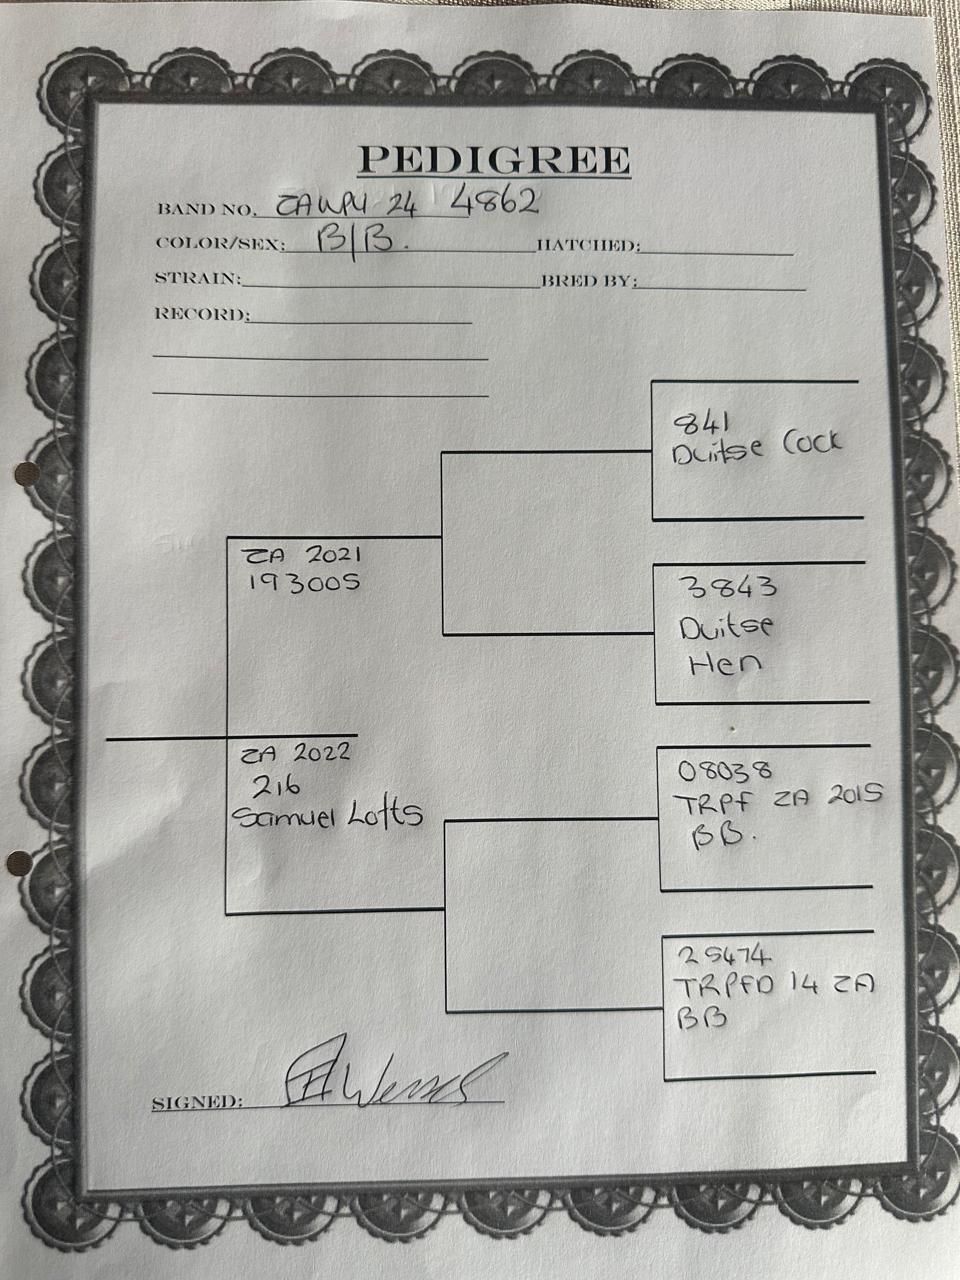 PEDIGREE
BAND NO. ZA WPU 24 4862
COLOR/SEX: B/B. HATCHED:
STRAIN: BRED BY:
RECORD:
841
Duitse Cock
ZA 2021
193005
3843
Duitse
Hen
ZA 2022
216
Samuel Lofts
08038
TRPF ZA 2015
BB.
25474
TRPFD 14 ZA
BB
SIGNED: